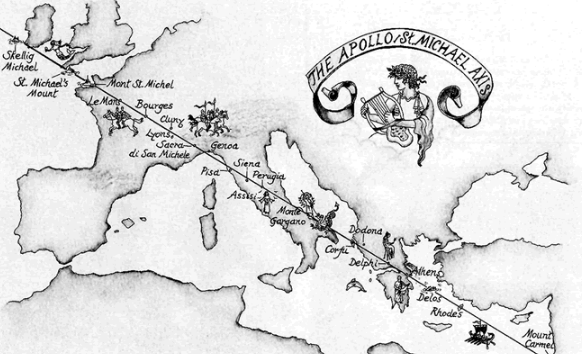 THE APOLLO/St. MICHAEL AXIS
Skellig
Michael
St. Michael's
Mount
Mont St. Michel
Le Mans
Bourges
Cluny
Lyons
Sacra
di San Michele
Genoa
Pisa
Siena
Perugia
Assisi
Monte
Gargano
Dodona
Corfu
Delphi
Athens
Delos
Rhodes
Mount
Carmel